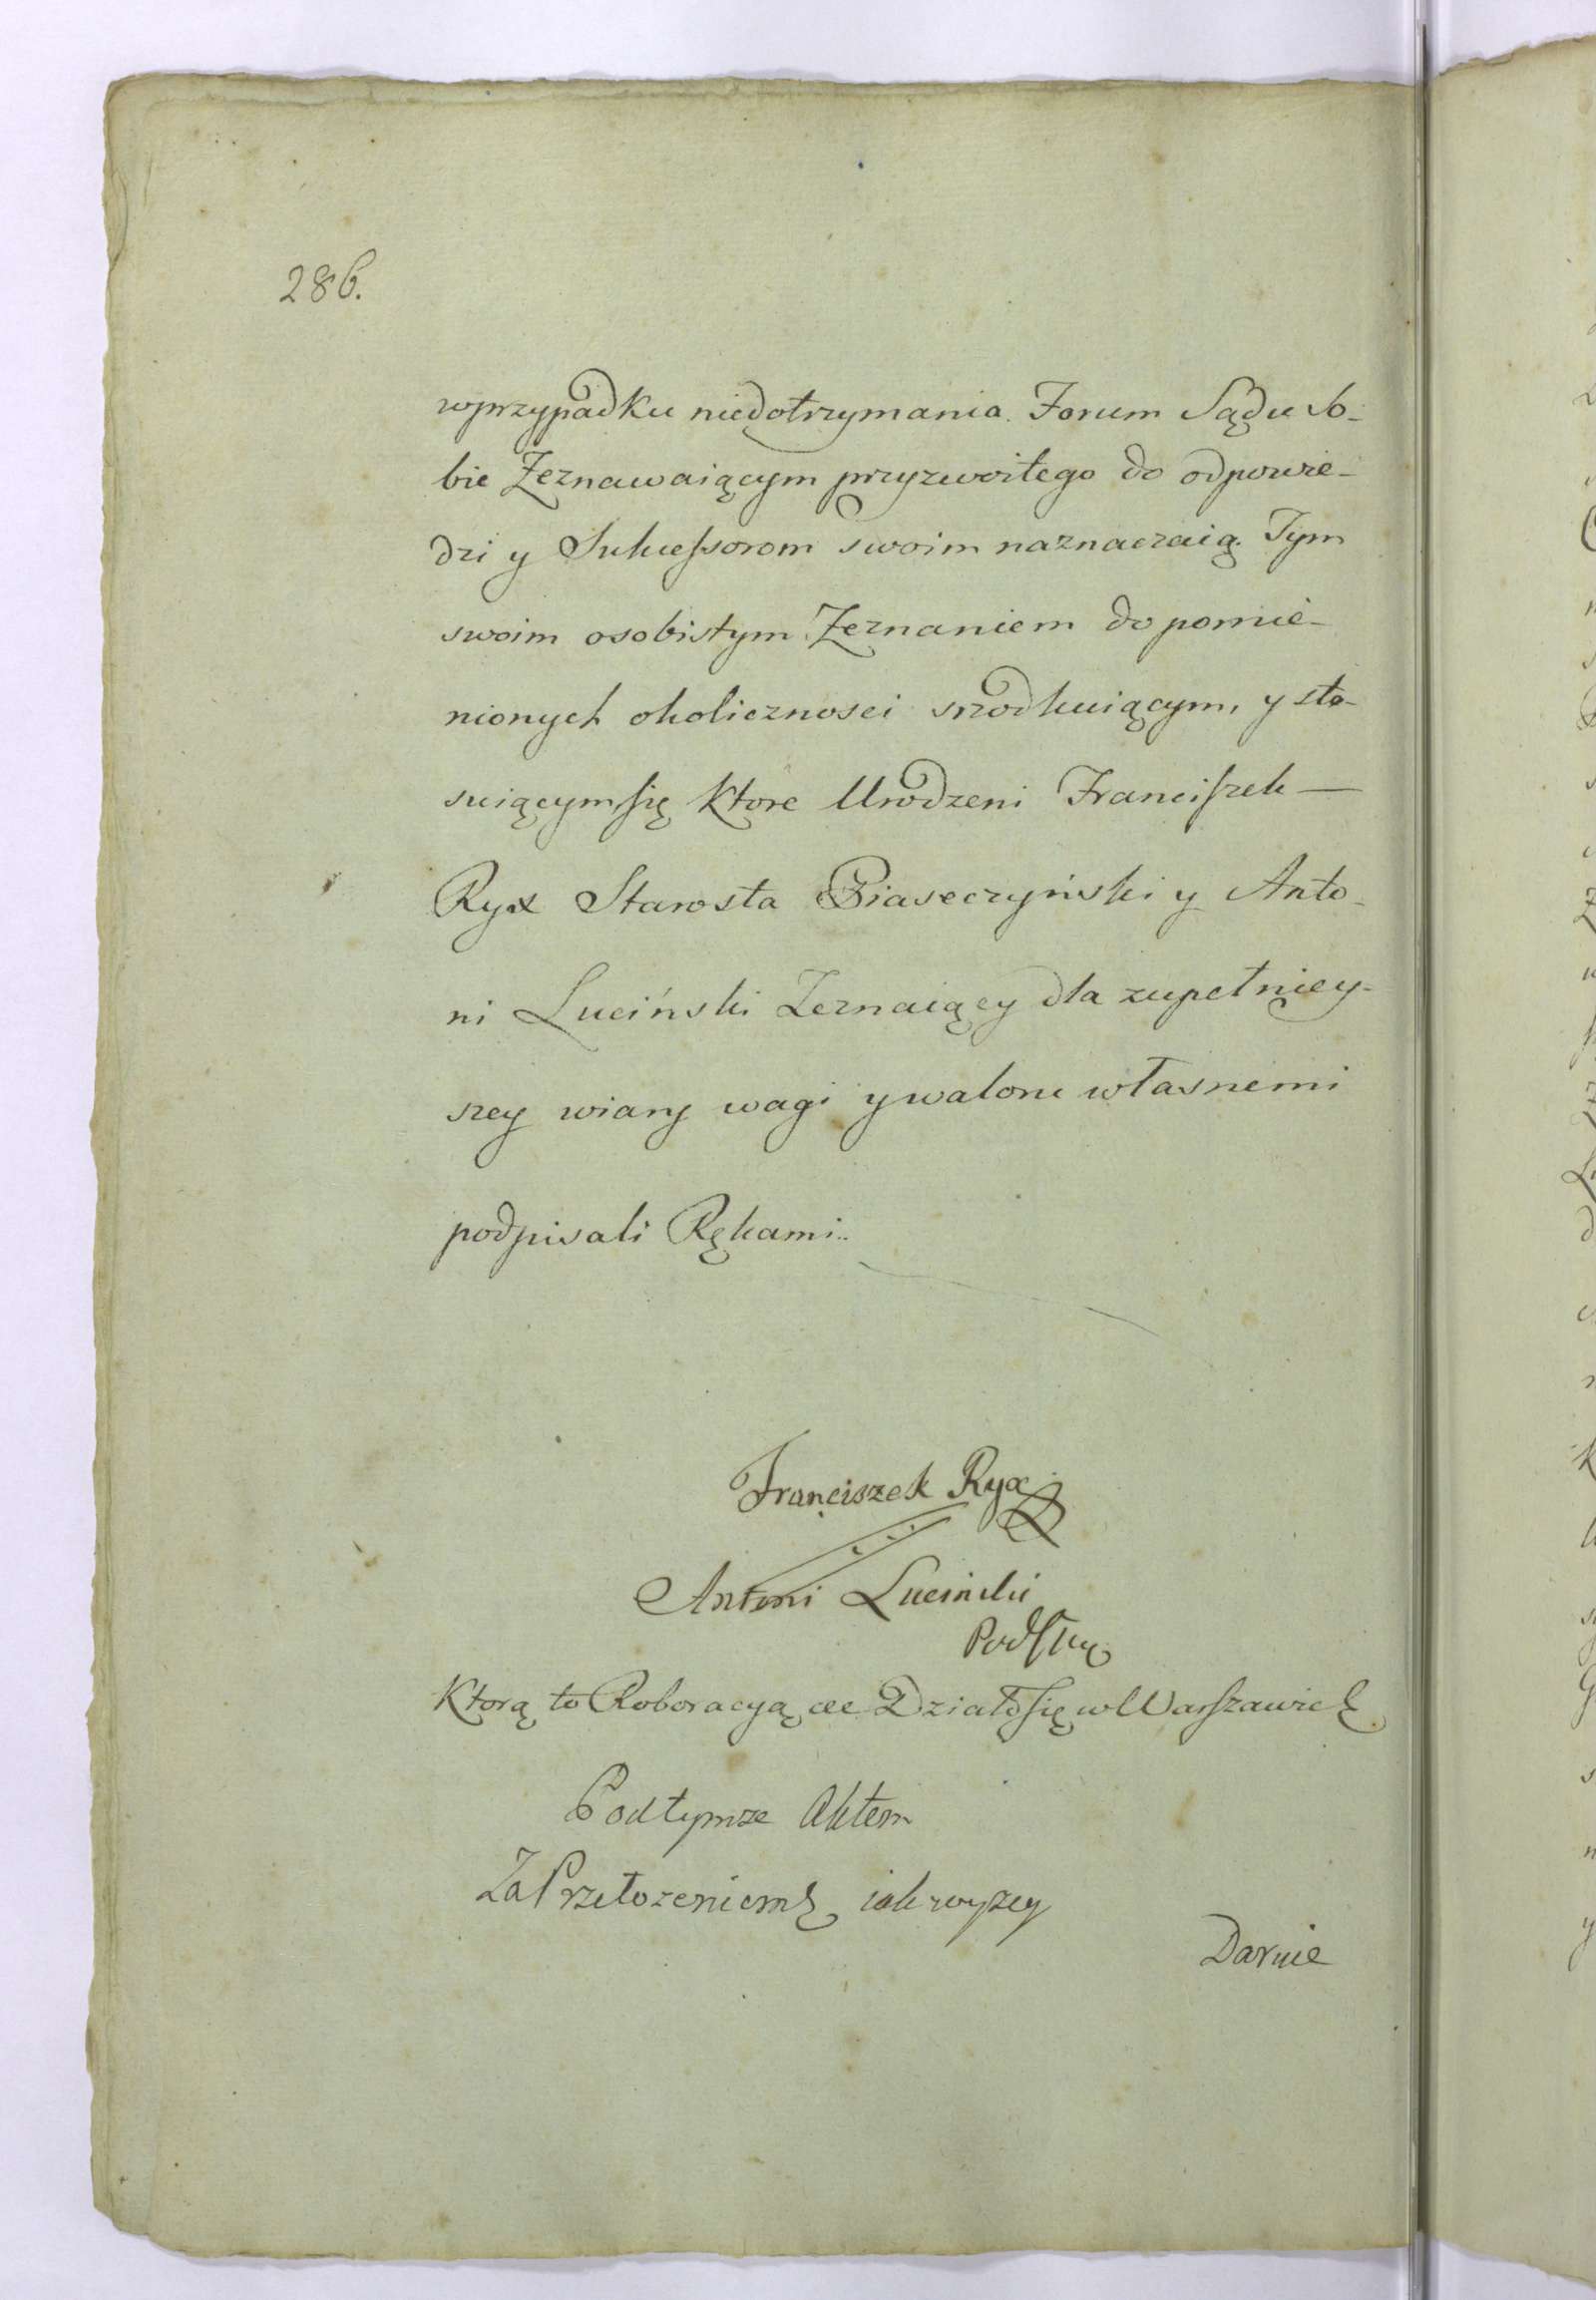 286.
wprzypadku niedotrzymania. Forum Sądu So-
bie Zeznawaiącym przyzwoitego do odpowie-
dzi y Sukcessorom swoim naznaczaią. Tym
swoim osobistym Zeznaniem do pomie-
nionych okolicznosci srzodkuiącym, y sto-
suiącym się ktore Urodzeni Franciszek —
Ryx Starosta Piaseczyński y Anto-
ni Luciński Zeznaiący dla zupełniey-
szey wiary wagi y waloru własnemi
podpisali Rękami..
Franciszek Ryx
Antoni Luciński
Ktorą to Roboracyą etc Działo się w Warszawie
Podtymze Aktem
Za Przełozeniem iak wyzey
Darnie